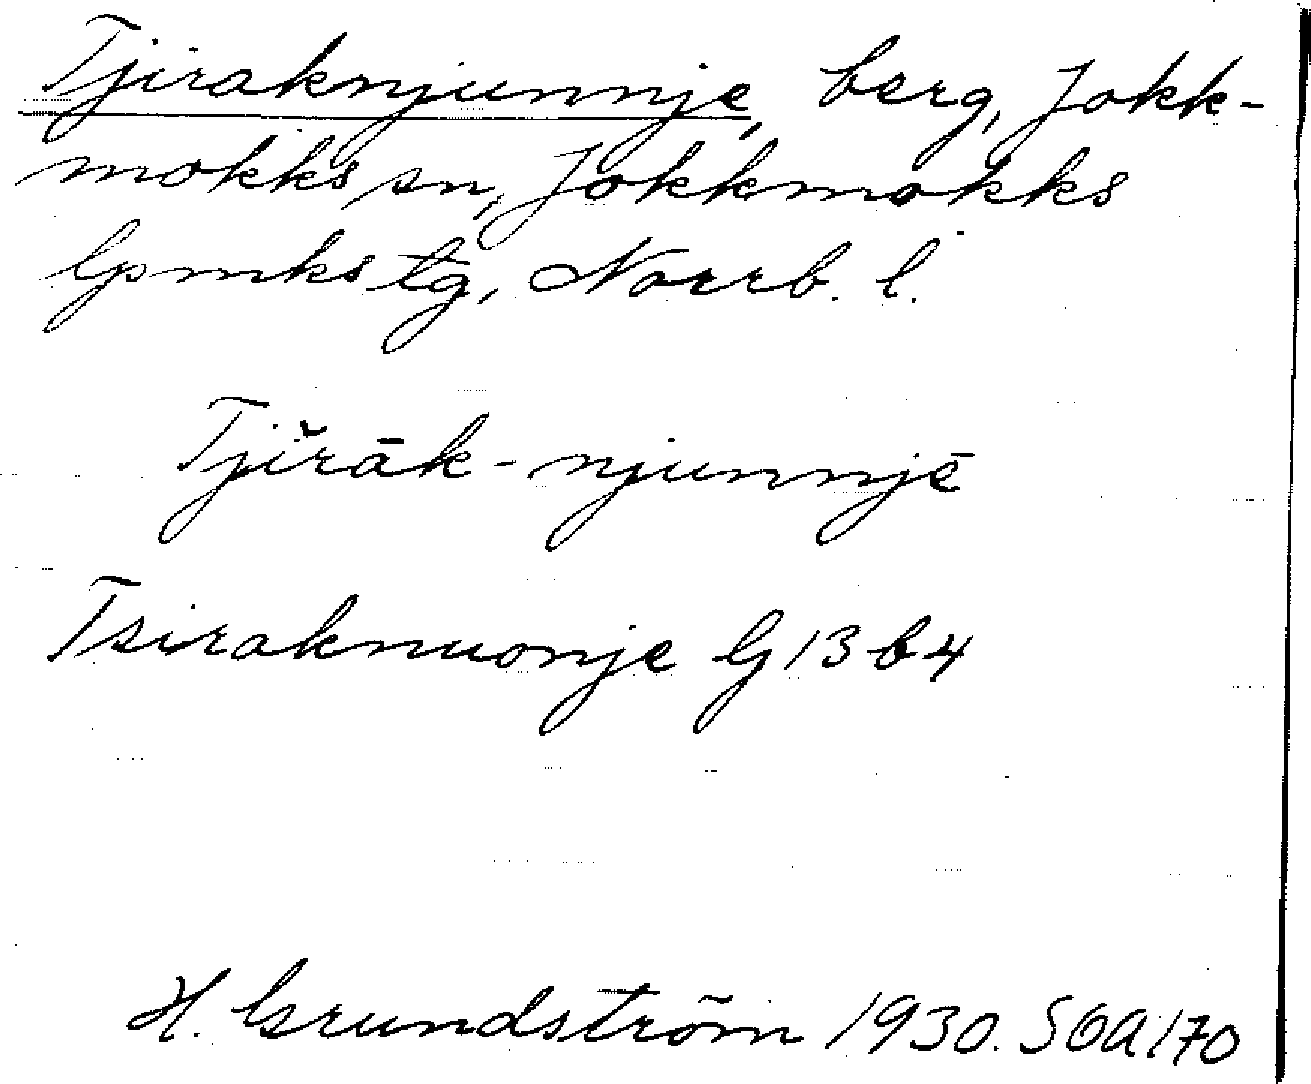 Tjiraknjunnje, berg, Jokk-
mokks sn, Jokkmokks
lpmks tg, Norrb. l.
Tjĭrāk-njunnjē
Tsiraknuonje G 13 b 4
H. Grundström 1930. SOA 170